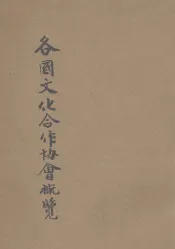 各國文化合作协會概覽